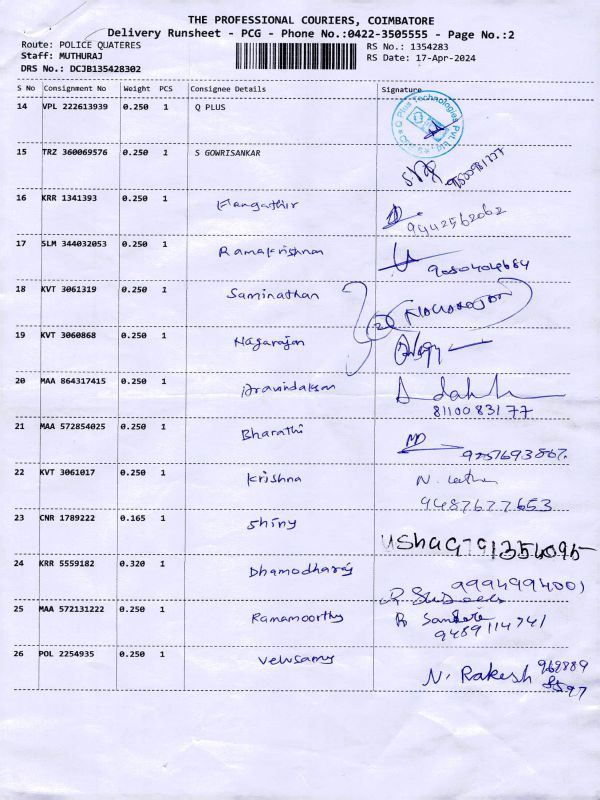 THE PROFESSIONAL COURIERS, COIMBATORE
Delivery Runsheet - PCG - Phone No.:0422-3505555 - Page No.:2
Route: POLICE QUATERES
RS No.: 1354283
Staff: MUTHURAJ
RS Date: 17-Apr-2024
DRS No.: DCJB135428302
S No Consignment No Weight PCS Consignee Details Signature
14 VPL 222613939 0.250 1 Q PLUS
Q Plus Technologies Pvt. Ltd.
15 TRZ 360069576 0.250 1 S GOWRISANKAR
16 KRR 1341393 0.250 1
9442562062
17 SLM 344032053 0.250 1 Ramakrishnan
18 KVT 3061319 0.250 1 Saminathan
19 KVT 3060868 0.250 1 Nagarajan
20 MAA 864317415 0.250 1 Aravindaksan
8110083177
21 MAA 572854025 0.250 1 Bharathi
22 KVT 3061017 0.250 1 Krishna N.
9487677653
23 CNR 1789222 0.165 1 Shiny
24 KRR 5559182 0.320 1 Dhamodharaj
9994994001
25 MAA 572131222 0.250 1 Ramamoorthy
9489114741
26 POL 2254935 0.250 1 Velusamy N. Rakesh